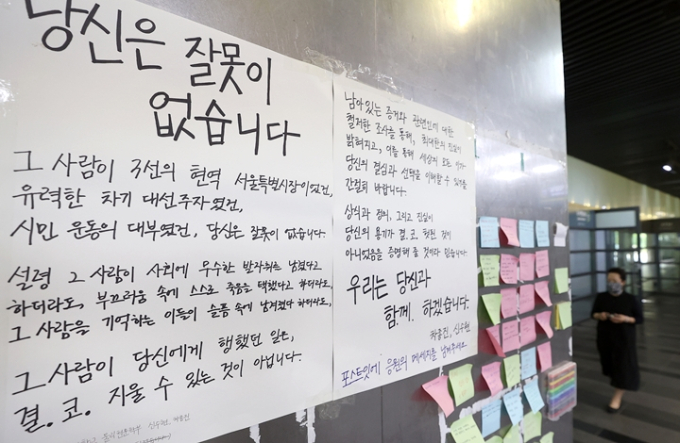 당신은 잘못이
없습니다
그 사람이 3선의 현역 서울특별시장이었건,
유력한 차기 대선주자였건,
시민 운동의 대부였건, 당신은 잘못이 없습니다.
설령 그 사람이 사회에 우수한 발자취를 남겼다고
하더라도, 부끄러움 속에 스스로 죽음을 택했다고 하더라도,
그 사람을 기억하는 이들이 슬픔 속에 남겨졌다 하더라도,
그 사람이 당신에게 행했던 일은,
결.코. 지울 수 있는 것이 아닙니다.
남아있는 증거와 관련인에 대한
철저한 조사를 통해, 최대한의 진실이
밝혀지고, 이를 통해 세상의 모든 이가
당신의 결심과 선택을 이해할 수 있기를
간절히 바랍니다.
상식과 정의, 그리고 진실이
당신의 용기가 결.코. 헛된 것이
아니었음을 증명해 줄 것이라 믿습니다.
우리는 당신과
함께. 하겠습니다.
포스트잇에 응원의 메세지를 남겨주세요.